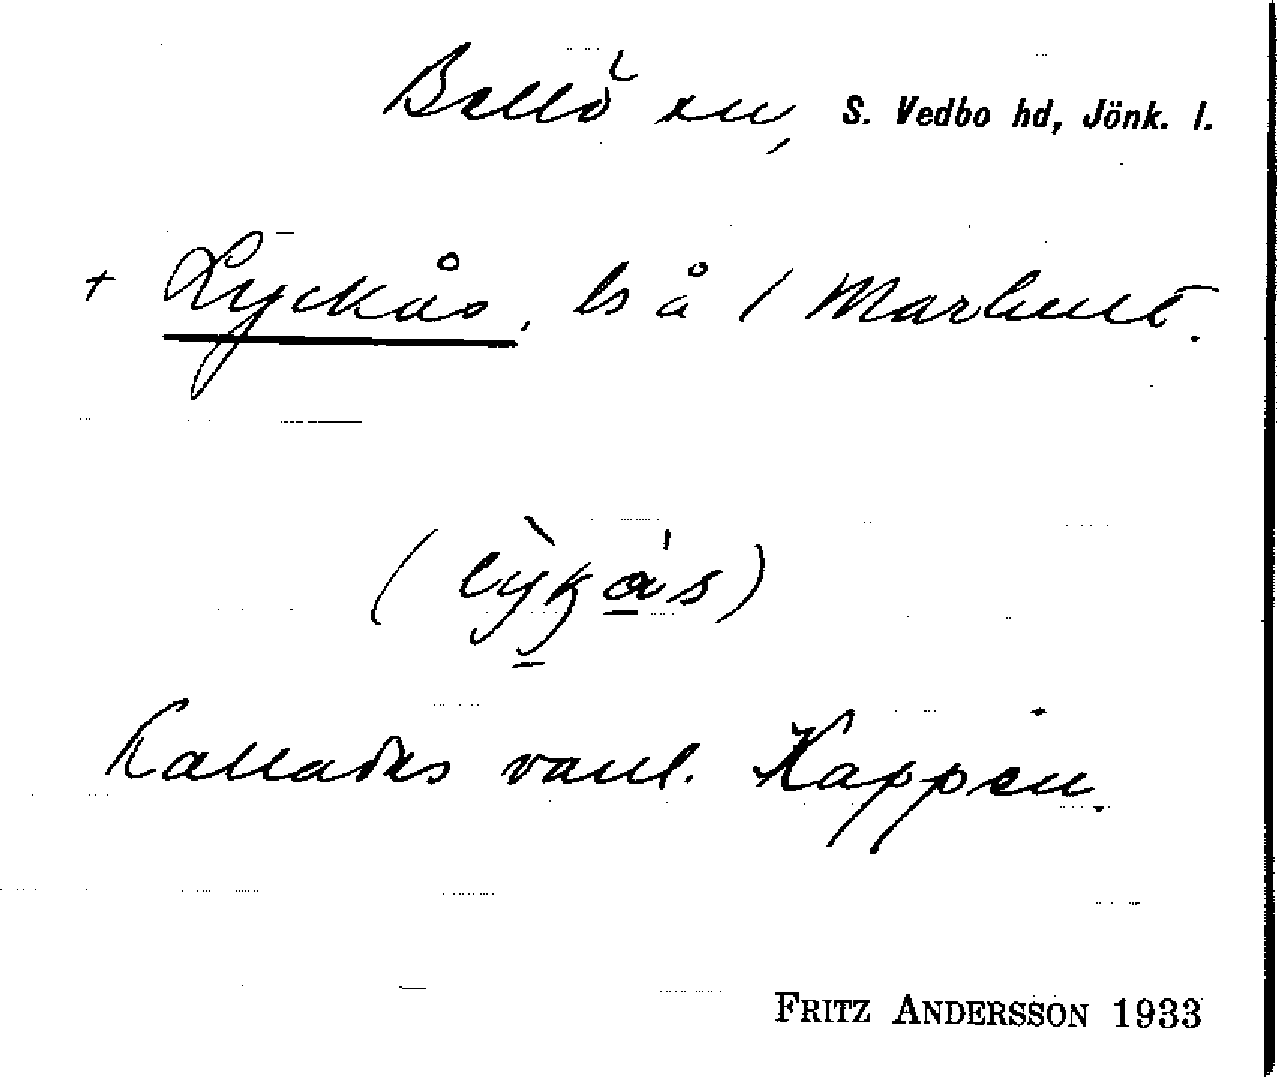 Bellö sn, S. Vedbo hd, Jönk. l.
+ Lyckås, ls å 1 Markult.
(lỳkås)
Kallades vanl. Kappen.
FRITZ ANDERSSON 1933